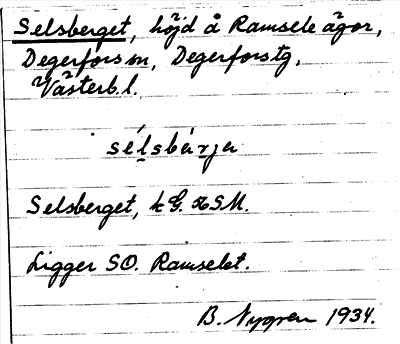 Selsberget, höjd å Ramsele ägor,
Degerfors sn, Degerforstg,
Västerb.l.
sélsbærja
Selsberget, k G.
Ligger SO. Ramselet.
B. Nygren 1934.